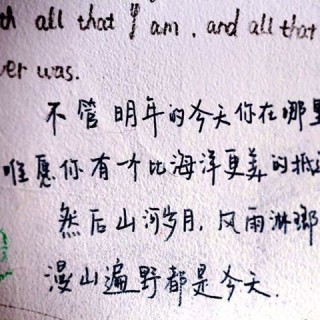 all that I am, and all that
was.
不管明年的今天你在哪里
唯愿你有一个比海洋更美的
然后山河岁月，风雨淋瑯
漫山遍野都是今天.